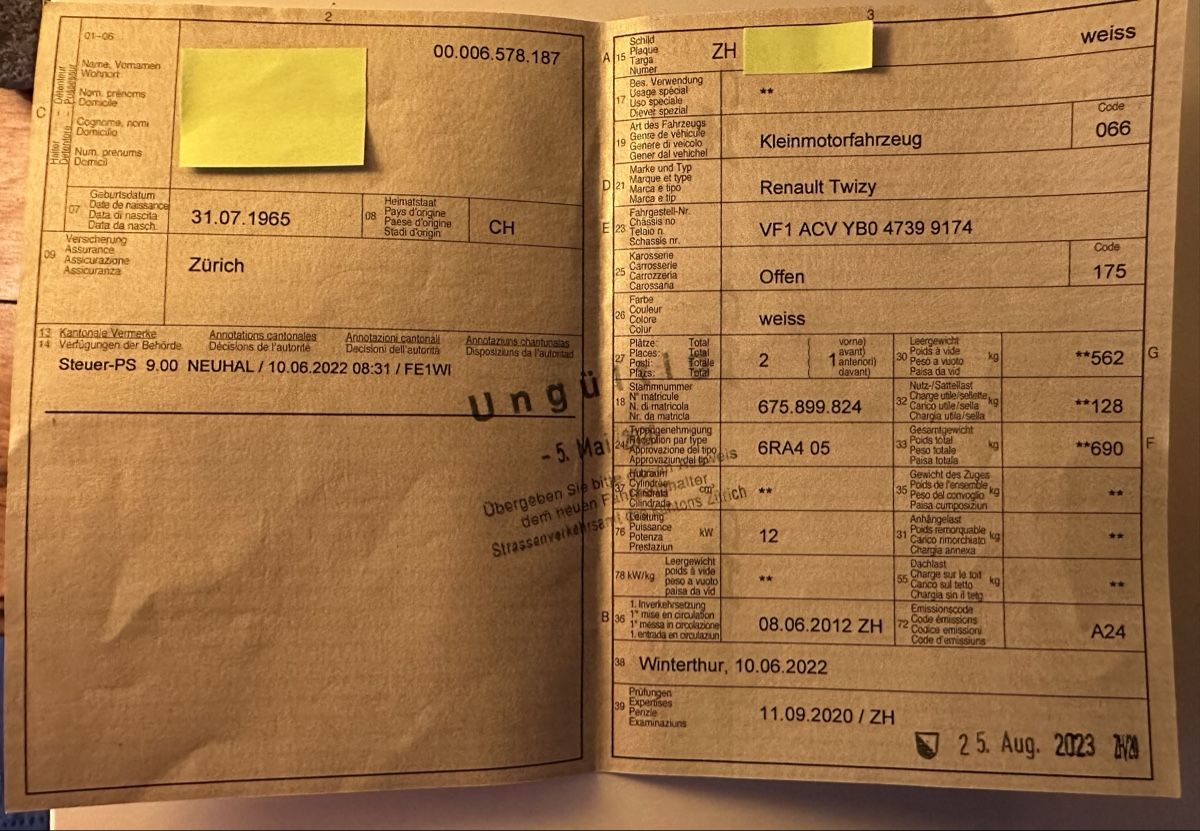 2
01-06
00.006.578.187
C
Halter – Détenteur
Detentore – Possessur
Name, Vornamen
Wohnort
Nom, prénoms
Domicile
Cognome, nomi
Domicilio
Num, prenums
Domicil
07
Geburtsdatum
Date de naissance
Data di nascita
Data da nasch.
31.07.1965
08
Heimatstaat
Pays d'origine
Paese d'origine
Stadi d'origin
CH
09
Versicherung
Assurance
Assicurazione
Assicuranza
Zürich
13 Kantonale Vermerke Annotations cantonales Annotazioni cantonali Annotaziuns chantunalas
14 Verfügungen der Behörde Décisions de l'autorité Decisioni dell'autorità Disposiziuns da l'autoritad
Steuer-PS 9.00 NEUHAL / 10.06.2022 08:31 / FE1WI
Ungül
- 5. Mai
Übergeben Sie bitte
dem neuen
Strassenverkehrsamt des Kantons Zürich
3
A
15
Schild
Plaque
Targa
Numer
ZH
weiss
17
Bes. Verwendung
Usage spécial
Uso speciale
Diever spezial
**
19
Art des Fahrzeugs
Genre de véhicule
Genere di veicolo
Gener dal vehichel
Kleinmotorfahrzeug
Code
066
D
21
Marke und Typ
Marque et type
Marca e tipo
Marca e tip
Renault Twizy
E
23
Fahrgestell-Nr.
Châssis no
Telaio n.
Schassis nr.
VF1 ACV YB0 4739 9174
25
Karosserie
Carrosserie
Carrozzeria
Carossaria
Offen
Code
175
26
Farbe
Couleur
Colore
Colur
weiss
27
Plätze: Total
Places: Total
Posti: Totale
Plazs: Total
2
1
vorne)
avant)
anteriori)
davant)
30
Leergewicht
Poids à vide
Peso a vuoto
Paisa da vid
kg
**562
G
18
Stammnummer
N° matricule
N. di matricola
Nr. da matricla
675.899.824
32
Nutz-/Sattellast
Charge utile/sellette
Carico utile/sella
Chargia utila/sella
kg
**128
24
Typengenehmigung
Réception par type
Approvazione del tipo
Approvaziun del tip
6RA4 05
33
Gesamtgewicht
Poids total
Peso totale
Paisa totala
kg
**690
F
37
Hubraum
Cylindrée
Cilindrata
Cilindrada
cm³
**
35
Gewicht des Zuges
Poids de l'ensemble
Peso del convoglio
Paisa cumposiziun
kg
**
76
Leistung
Puissance
Potenza
Prestaziun
kW
12
31
Anhängelast
Poids remorquable
Carico rimorchiato
Chargia annexa
kg
**
78 kW/kg
Leergewicht
poids à vide
peso a vuoto
paisa da vid
**
55
Dachlast
Charge sur le toit
Carico sul tetto
Chargia sin il tetg
kg
**
B
36
1. Inverkehrsetzung
1re mise en circulation
1a messa in circolazione
1. entrada en circulaziun
08.06.2012 ZH
72
Emissionscode
Code émissions
Codice emissioni
Code d'emissiuns
A24
38
Winterthur, 10.06.2022
39
Prüfungen
Expertises
Perizie
Examinaziuns
11.09.2020 / ZH
25. Aug. 2023